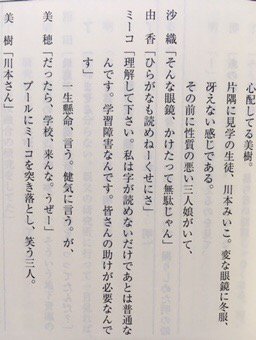 心配してる美樹。
片隅に見学の生徒、川本みいこ。変な眼鏡に冬服、
冴えない感じである。
その前に性質の悪い三人娘がいて、
沙織「そんな眼鏡、かけたって無駄じゃん」
由香「ひらがなも読めねーくせにさ」
ミーコ「理解して下さい。私は字が読めないだけであとは普通な
んです。学習障害なんです。皆さんの助けが必要なんで
す」
一生懸命、言う。健気に言う。が、
美穂「だったら、学校、来んな。うぜー」
プールにミーコを突き落とし、笑う三人。
美樹「川本さん」